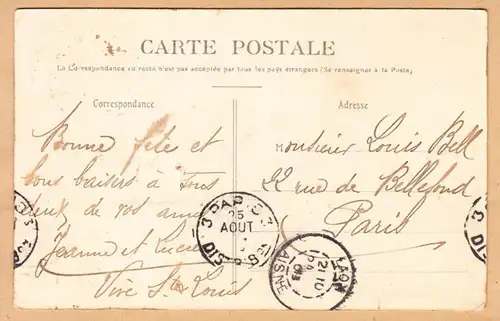 CARTE POSTALE
La Correspondance au recto n'est pas acceptée par tous les pays étrangers (Se renseigner à la Poste)
Correspondance
Adresse
Bonne fête et
bons baisers à tous
deux de vos amis
Jeanne et Lucien
Vive St Louis
Monsieur Louis Bell
22 rue de Bellefond
Paris
3 PARIS 3
25
AOUT
DISTR
LAON
AISNE
12/10
24